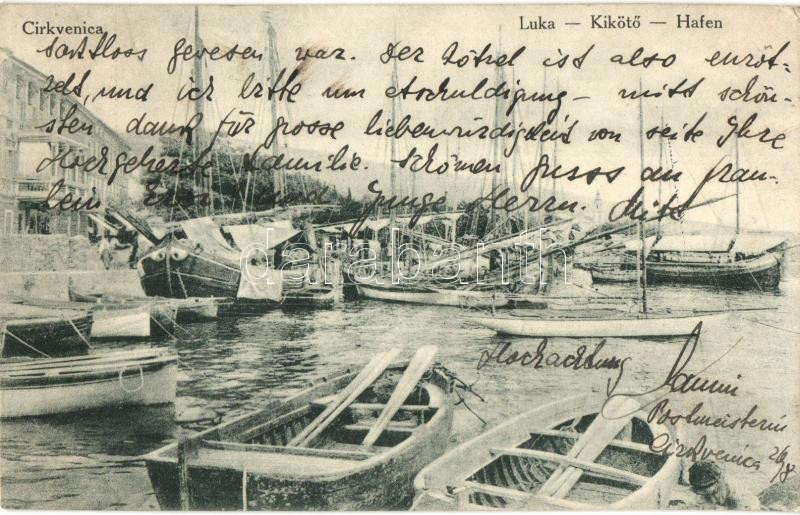 Cirkvenica
Luka — Kikötő — Hafen
gewesen war. Der Zötzel ist also
und ich bitte um Entschuldigung — mitt schön-
sten dank für grosse liebenwürdigkeit von seite Ihre
Hochgeherte Familie. Schönen guss an fräu-
lein und Junge Herrn. Mitt
darabanth.com
Hochachtung
Postmeisterin
Cirkvenica